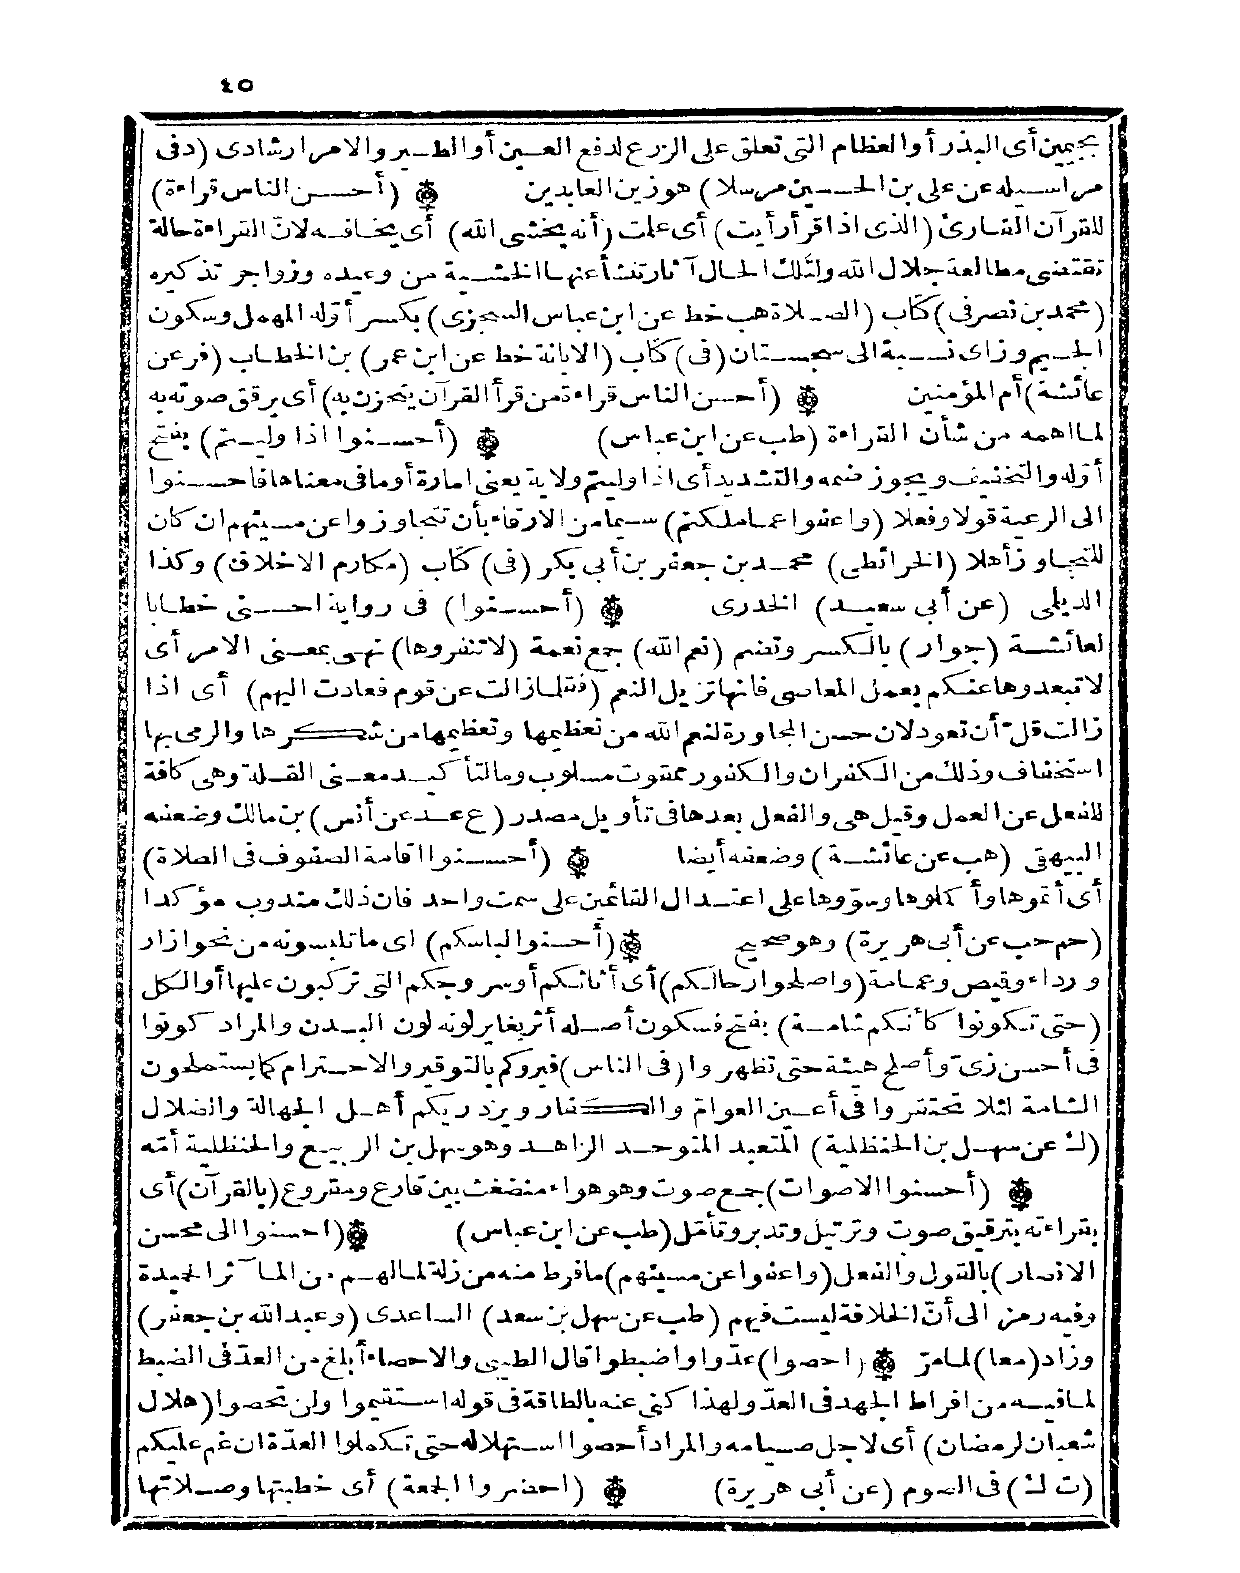 ٤٥
بجيمين أى البذر أو العظام التى تعلق على الزرع لدفع العين أو الطير والامر ارشادى (د فى
مراسيله عن على بن الحسين مرسلا) هو زين العابدين (أحسن الناس قراءة)
للقرآن القارئ (الذى اذا قرأ رأيت) أى علمت (أنه يخشى الله) أى يخافه لانّ القراءة حالة
تقتضى مطالعة جلال الله ولتلك الحال آثار تنشأ عنها الخشية من وعيده وزواجر تذكيره
(محمد بن نصر فى) كتاب (الصلاة هب خط عن ابن عباس السجزى) بكسر أوّله المهمل وسكون
الجيم وزاى نسبة الى سجستان (فى) كتاب (الابانة خط عن ابن عمر) بن الخطاب (فر عن
عائشة) أم المؤمنين (أحسن الناس قراءة من قرأ القرآن يتحزن به) أى يرقق صوته به
لما اهمه من شأن القراءة (طب عن ابن عباس) (أحسنوا اذا وليتم) بفتح
أوّله والتخفيف ويجوز ضمه والتشديد أى اذا وليتم ولاية يعنى امارة أو ما فى معناها فاحسنوا
الى الرعية قولا وفعلا (واعفوا عما ملكتم) سيما من الارقاء بأن تتجاوزوا عن مسيئهم ان كان
للتجاوز أهلا (الخرائطى) محمد بن جعفر بن أبى بكر (فى) كتاب (مكارم الاخلاق) وكذا
الديلمى (عن أبى سعيد) الخدرى (أحسنوا) فى رواية احسنى خطابا
لعائشة (جوار) بالكسر وتضم (نعم الله) جمع نعمة (لا تنفروها) نهى بمعنى الامر أى
لا تبعدوها عنكم بعمل المعاصى فانها تزيل النعم (فقلما زالت عن قوم فعادت اليهم) أى اذا
زالت قلّ أن تعود لان حسن المجاورة لنعم الله من تعظيمها وتعظيمها من شكرها والرمى بها
استخفاف وذلك من الكفران والكفور ممقوت مسلوب وما لتأكيد معنى القلة وهى كافة
للفعل عن العمل وقيل هى والفعل بعدها فى تأويل مصدر (ع عد عن أنس) بن مالك وضعفه
البيهقى (هب عن عائشة) وضعفه أيضا (أحسنوا اقامة الصفوف فى الصلاة)
أى أتموها وأكملوها وسوّوها على اعتدال القائمين على سمت واحد فان ذلك مندوب مؤكدا
(حم حب عن أبى هريرة) وهو صحيح (أحسنوا لباسكم) اى ما تلبسونه من نحو ازار
ورداء وقميص وعمامة (واصلحوا رحالكم) أى أثاثكم أو سروجكم التى تركبون عليها أو الكل
(حتى تكونوا كأنكم شامة) بفتح فسكون أصله أثر يغاير لونه لون البدن والمراد كونوا
فى أحسن زىّ وأصلح هيئة حتى تظهروا (فى الناس) فيروكم بالتوقير والاحترام كما يستملحون
الشامة لئلا تحتقروا فى أعين العوام والكفار ويزدريكم أهل الجهالة والضلال
(ك عن سهل بن الحنظلية) المتعبد المتوحد الزاهد وهو سهل بن الربيع والحنظلية أمّه
(أحسنوا الاصوات) جمع صوت وهو هواء منضغث بين قارع ومقروع (بالقرآن) أى
بقراءته بترقيق صوت وترتيل وتدبر وتأمّل (طب عن ابن عباس) (احسنوا الى محسن
الانصار) بالقول والفعل (واعفوا عن مسيئهم) ما فرط منه من زلة لما لهم من المآثر الحميدة
وفيه رمز الى أنّ الخلافة ليست فيهم (طب عن سهل بن سعد) الساعدى (وعبد الله بن جعفر)
وزاد (معا) لما مرّ (احصوا) عدّوا واضبطوا قال الطيبى والاحصاء أبلغ من العدّ فى الضبط
لما فيه من افراط الجهد فى العدّ ولهذا كنى عنه بالطاقة فى قوله استقيموا ولن تحصوا (هلال
شعبان لرمضان) أى لاجل صيامه والمراد أحصوا استهلاله حتى تكملوا العدّة ان غم عليكم
(ت ك) فى الصوم (عن أبى هريرة) (احضروا الجمعة) أى خطبتها وصلاتها